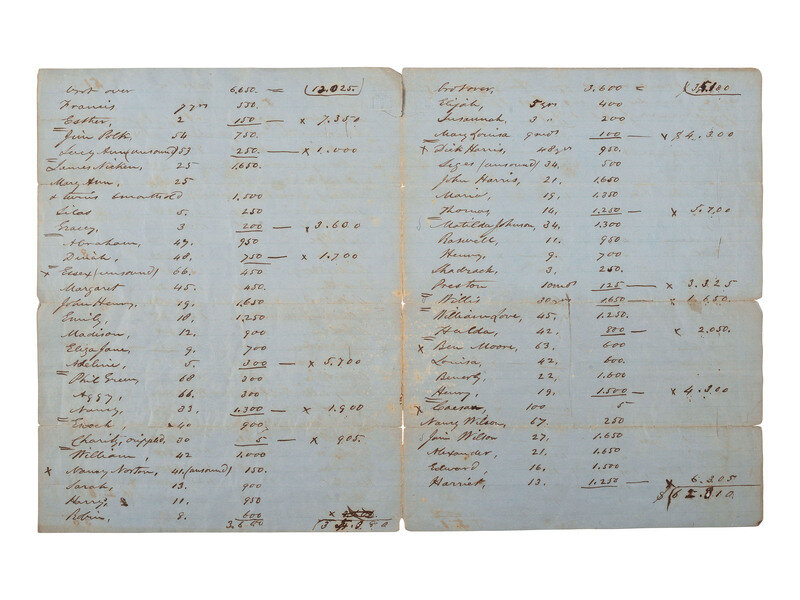 Brot over 6,650. = (12.025.
Francis 7 yrs 550.
Esther, 2 150 — x 7.350
Jim Polk, 54 750.
Lucy Ann (unsound) 53 250 — x 1.000
James Nicken, 25 1,650.
Mary Ann, 25
1,500
Silas 5. 250
Gracey, 3 200 — x 3.600
Abraham, 49. 950
Dinah, 48. 750 — x 1.700
x Essex (unsound) 66. 450
Margaret 45. 450.
John Henry, 19. 1,650
Emily 18. 1,250
Madison, 12. 900
Eliza Jane, 9. 700
Adeline, 5. 300 — x 5.700
Phil Green 68 300
Aggy, 66. 300
Nancy, 33. 1.300 — x 1.900
Enoch x 40 900.
Charity, cripple, 00 5 — x 905.
William, 42 1.000
x Nancy Norton, 41 (unsound) 150.
Sarah, 13. 900
Harry, 11. 950
Robin, 9. 600 x
3.600
Brot over, 3.600 =
Elijah, 5 yrs 400
Susannah, 3 " 200
Mary Louisa 9 mods 100 — x $4.300
x Dick Harris, 48 yrs 950.
(unsound) 34. 500
John Harris, 21. 1.650
Maria, 19. 1.350
Thomas 14. 1.250 — x 5.700
Matilda Johnson, 34. 1.300
Roswell, 11. 950
Henry, 9. 700
Shadrack, 3 250.
Preston 10 mos 125 — x 3.325
Willis 30 yrs 1650 — x 1.650.
William Love, 45. 1.250.
Hulda, 42. 800 — x 2.050.
x Ben Moore, 63. 600
Louisa, 42. 600.
Beverly, 22, 1.600
Henry, 19. 1.500 — x 4.300
x Caesar, 100 5
Nancy Wilson, 67. 250
Jim Wilson 27, 1.650
Alexander, 21. 1.650
Edward, 16. 1.500
Harriet, 13. 1.250 — x 6.305